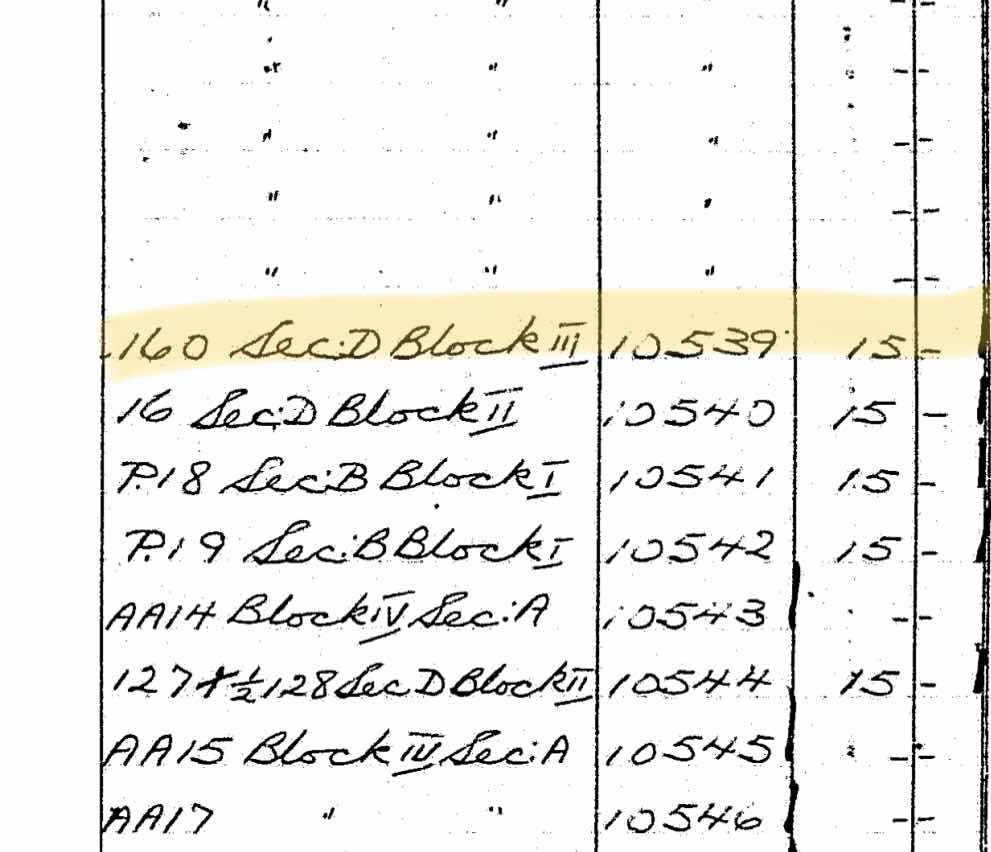 " " - -
" " " - -
" " " - -
" " " - -
" " " - -
160 Sec:D Block III 10539 15 -
16 Sec:D Block II 10540 15 -
P.18 Sec:B Block I 10541 15 -
P.19 Sec:B Block I 10542 15 -
AA14 Block IV Sec:A 10543 - -
127 + ½ 128 Sec D Block II 10544 15 -
AA15 Block IV Sec:A 10545 - -
AA17 " " 10546 - -